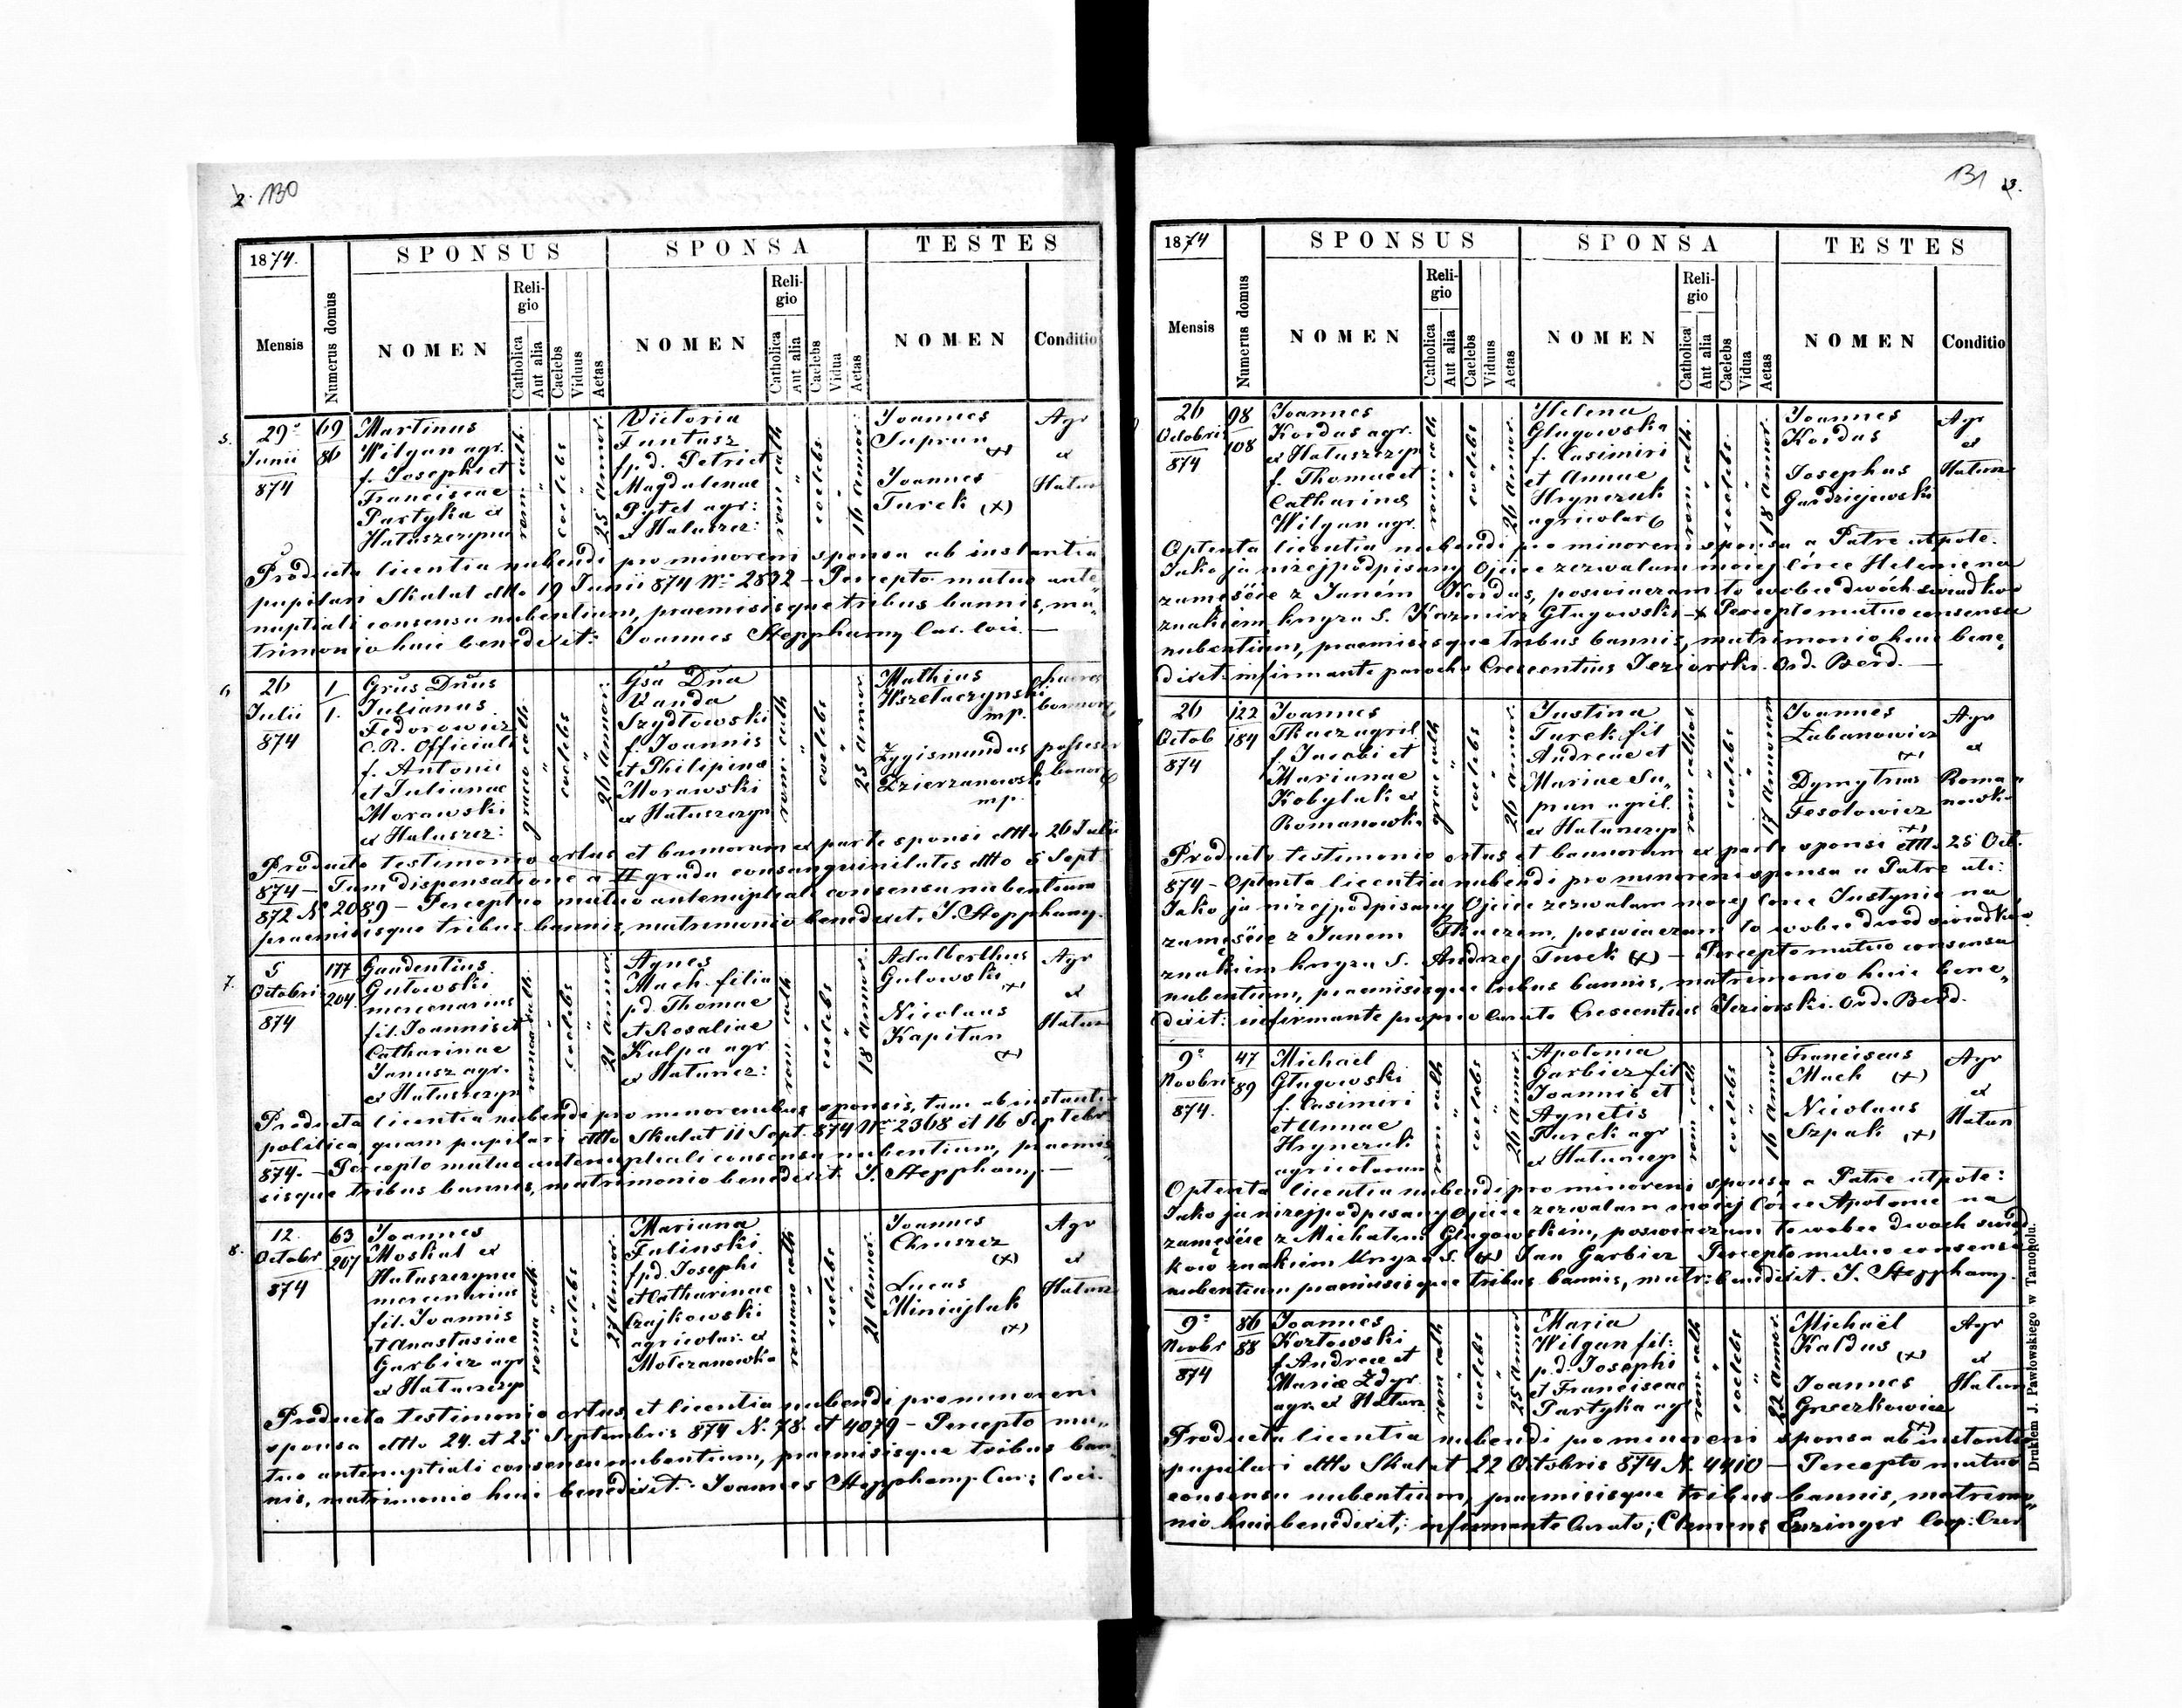 2. 130
1874.
SPONSUS
SPONSA
TESTES
Mensis
Numerus domus
NOMEN
Religio
Catholica
Aut alia
Caelebs
Viduus
Aetas
NOMEN
Religio
Catholica
Aut alia
Caelebs
Vidua
Aetas
NOMEN
Conditio
5.
29a
Junii
874
69
86
Martinus
Wilgan agr.
f. Josephi et
Franciscae
Partyka ex
Hałuszczyna
rom. cath.
coelebs
25 Annor.
Victoria
Funtusz
f. p.d. Petri et
Magdalenae
Pytel agr:
ex Hałuszcz:
rom cath
coelebs
16 Annor
Joannes
Suprun
(x)
Joannes
Turek (x)
Agr
ex
Hałusz
Producta licentia nubendi pro minoreni sponsa ab instantia
pupilari Skałat dtto 19 Junii 874 No 2832 – Percepto mutuo ante
nuptiali consensu nubentium, praemisisque tribus bannis, ma„
trimonio huic benedixit: Joannes Stepphany Cur. loci. —
6
26
Julii
874
1
1.
Grus Dnus
Julianus
Fedorowicz
C.R. Official
f. Antonii
et Julianae
Morawski
ex Hałuszcz:
graeco cath.
coelebs
26 Annor.
Gsa Dna
Vanda
Szydłowski
f. Joannis
et Philipinae
Morawski
ex Hałuszczyn
rom. cath
coelebs
25 annor
Mathias
Wszelaczynski
mp.
Zygismundus
Dzierzanowski
mp.
haeres
bonnor
possessor
bonor
Producto testimonio ortus et bannorum ex parte sponsi dtto 26 Julii
874 – Tum dispensatione a II gradu consanguinitatis dtto 5 Sept
872 N. 2089 – Perceptuo mutuo antenuptiali consensu nubentium
praemisisque tribus bannis, matrimonio benedixit. J. Stepphany.
7.
5
Octobri
874
177
204.
Gaudentius
Gutowski
mercenarius
fil. Joannis et
Catharinae
Janusz agr.
ex Hałuszczyn
romca cath.
coelebs
21 annor
Agnes
Mach filia
p.d. Thomae
et Rosaliae
Kulpa agr
ex Hałuszcz:
rom. cath
coelebs
18 Annor.
Adalberthus
Gulowski
(x)
Nicolaus
Kapitan
(x)
Agr
ex
Hałusz
Producta licentia nubendi pro minorenibus sponsis, tam ab instantia
politica, quam pupilari dtto Skałat 11 Sept. 874 No 2368 et 16 Septebr
874. – Percepto mutuo antenuptiali consensu nubentium, praemis„
sisque tribus bannis, matrimonio benedixit. J. Stepphany. —
8.
12.
Octobr
874
63
207
Joannes
Moskal ex
Hałuszczyna
mercenarius
fil. Joannis
et Anastasiae
Garbicz agr
ex Hałuszczyn
roma cath.
coelebs
27 Annor.
Mariana
Falinski
f. p.d. Josephi
et Catharinae
Czajkowski
agricolar. ex
Mołczanowka
romano cath
coelebs
21 Annor.
Joannes
Chruszcz
(x)
Lucas
Miniajluk
(x)
Agr
ex
Hałusz
Producto testimonio ortus et licentia nubendi pro minoreni
sponsa dtto 24. et 25 Septembris 874 N. 78. et 4079 – Percepto mu„
tuo antenuptiali consensu nubentium, praemisisque tribus ban„
nis, matrimonio huic benedixit. Joannes Stepphany Cur: loci.
131 3.
1874
SPONSUS
SPONSA
TESTES
Mensis
Numerus domus
NOMEN
Religio
Catholica
Aut alia
Caelebs
Viduus
Aetas
NOMEN
Religio
Catholica
Aut alia
Caelebs
Vidua
Aetas
NOMEN
Conditio
26
Octobris
874
98
108
Joannes
Kordas agr.
ex Hałuszczyn
f. Thomae et
Catharinae
Wilgan agr.
rom cath
coelebs
26 annor.
Helena
Gługowska
f. Casimiri
et Annae
Hrynczuk
agricolar
rom cath.
coelebs.
18 annor.
Joannes
Kordas
Josephus
Gardziejewski
Agr
ex
Hałusz
Optenta licentia nubendi pro minoreni sponsa a Patre utpote.
Jako ja nizejpodpisany Ojciec zezwalam mojej Córce Helenie na
zamęście z Janem Kordas, poswiaczam to wobec dwóch swiadkow
znakiem krzyza S. Kazmirz Gługowski – x Percepto mutuo consensu
nubentium, praemisisque tribus bannis, matrimonio huic bene„
dixit. infirmante parocho Crescentius Jeziorski. Ord. Berd. —
26
Octob
874
122
184
Joannes
Tkacz agril
f. Jacobi et
Marianae
Kobylak ex
Romanowka
grae cath
coelebs
26 annor.
Justina
Turek fil
Andreae et
Mariae Su„
prun agril.
ex Hałuszczyn
rom cathol.
coelebs
17 Annorum
Joannes
Łabanowicz
(x)
Dymytrus
Fesołowicz
(x)
Agr
ex
Roma„
nowka
Producto testimonio ortus et bannorum ex parte sponsi dtto. 25 Oct.
874 – Optenta licentia nubendi pro minoreni sponsa a Patre uti:
Jako ja nizejpodpisany Ojciec zezwalam mojej Corce Justynie na
zamęście z Janem Tkaczem, poswiaczam to wobec dwoch swiadków
znakiem krzyza S. Andrzej Turek (x) – Percepto mutuo consensu
nubentium, praemisisque tribus bannis, matrimonio huic bene„
dixit: infirmante proprio Curato Crescentius Jeziorski. Ord. Berd.
9a
Novbris
874.
47
89
Michaël
Gługowski
f. Casimiri
et Annae
Hrynczuk
agricolarum
rom cath
coelebs
26 Annor
Apolonia
Garbicz fil
Joannis et
Agnetis
Turek agr
ex Hałuszczyn
rom cath
coelebs
16 Annor
Franciscus
Mach (x)
Nicolaus
Szpak (x)
Agr
ex
Hałusz
Optenta licentia nubendi pro minoreni sponsa a Patre utpote:
Jako ja nizejpodpisany Ojciec zezwalam mojej Córce Apolonie na
zamęście z Michałem Gługowskim, poswiaczam to wobec dwoch swiad„
kow znakiem krzyza S. (x) Jan Garbicz Percepto mutuo consensu
nubentium praemisisque tribus bannis, matr: benedixit. J. Stepphany.
9a
Novbr
874
86
88
Joannes
Kozłowski
f. Andreae et
Mariae Zdyr
agr. ex Hałusz
rom cath
coelebs
25 Annor
Maria
Wilgan fil:
p.d. Josephi
et Franciscae
Partyka agr
rom cath
coelebs
22 Annor.
Michaël
Kaldus
(x)
Joannes
Greczkowicz
(x)
Agr
ex
Hałusz
Producta licentia nubendi pro minoreni sponsa ab instantia
pupilari dtto Skałat 22 Octobris 874 N. 4410 – Percepto mutuo
consensu nubentium, praemisisque tribus bannis, matrimo„
nio huic benedixit; infirmante Curato; Clemens Enzinger Coop: Exer
Drukiem J. Pawłowskiego w Tarnopolu.